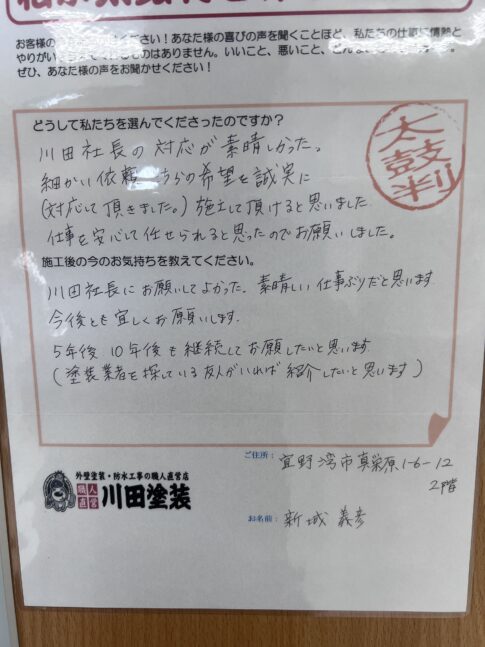 お客様の
やりがい
ぜひ、あなた様の声をお聞かせください！
どうして私たちを選んでくださったのですか？
川田社長の対応が素晴しかった。
細かい依頼 こちらの希望を誠実に
(対応して頂きました。) 施工して頂けると思いました
仕事を安心して任せられると思ったのでお願いしました。
太鼓判
施工後の今のお気持ちを教えてください。
川田社長にお願いしてよかった。素晴しい仕事ぶりだと思います
今後とも宜しくお願いします。
5年後 10年後も継続してお願したいと思います
(塗装業者を探している友人がいれば紹介したいと思います)
ご住所：宜野湾市真栄原1-6-12
2階
外壁塗装・防水工事の職人直営店
職人直営 川田塗装
お名前：新城 義彦